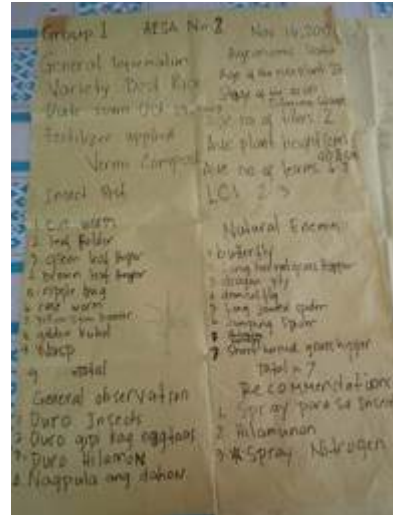 Group 1 AESA No. 2 Nov 16, 200
General Information
Variety Dost Rice
Date sown Oct
Fertilizer applied
Vermi Compost
Insect Pest
1. Cut worm
2. leaf folder
3. green leaf hopper
4. brown leaf hopper
5. ripple bug
6. case worm
7. stem borer
8. golden kuhol
9. Wasp
9 total
General observation
1. Duro Insects
2. Duro gipi kag eggtaas
3. Duro Hilamon
4. Nagpula ang dahon
Agronomic Data
Age of the rice plant
Stage of the
Ave no of tillers 2
Ave plant height (cm)
Ave no of leaves 6-7
LCI 2-3
Natural Enemies
butterfly
long horned grass hopper
3 dragon fly
damsel fly
long jawed spider
jumping spider
7 Short horned grass hopper
Total = 7
Recommendations
1. Spray para sa Insect
2. Hilamunan
3 * Spray Nitrogen